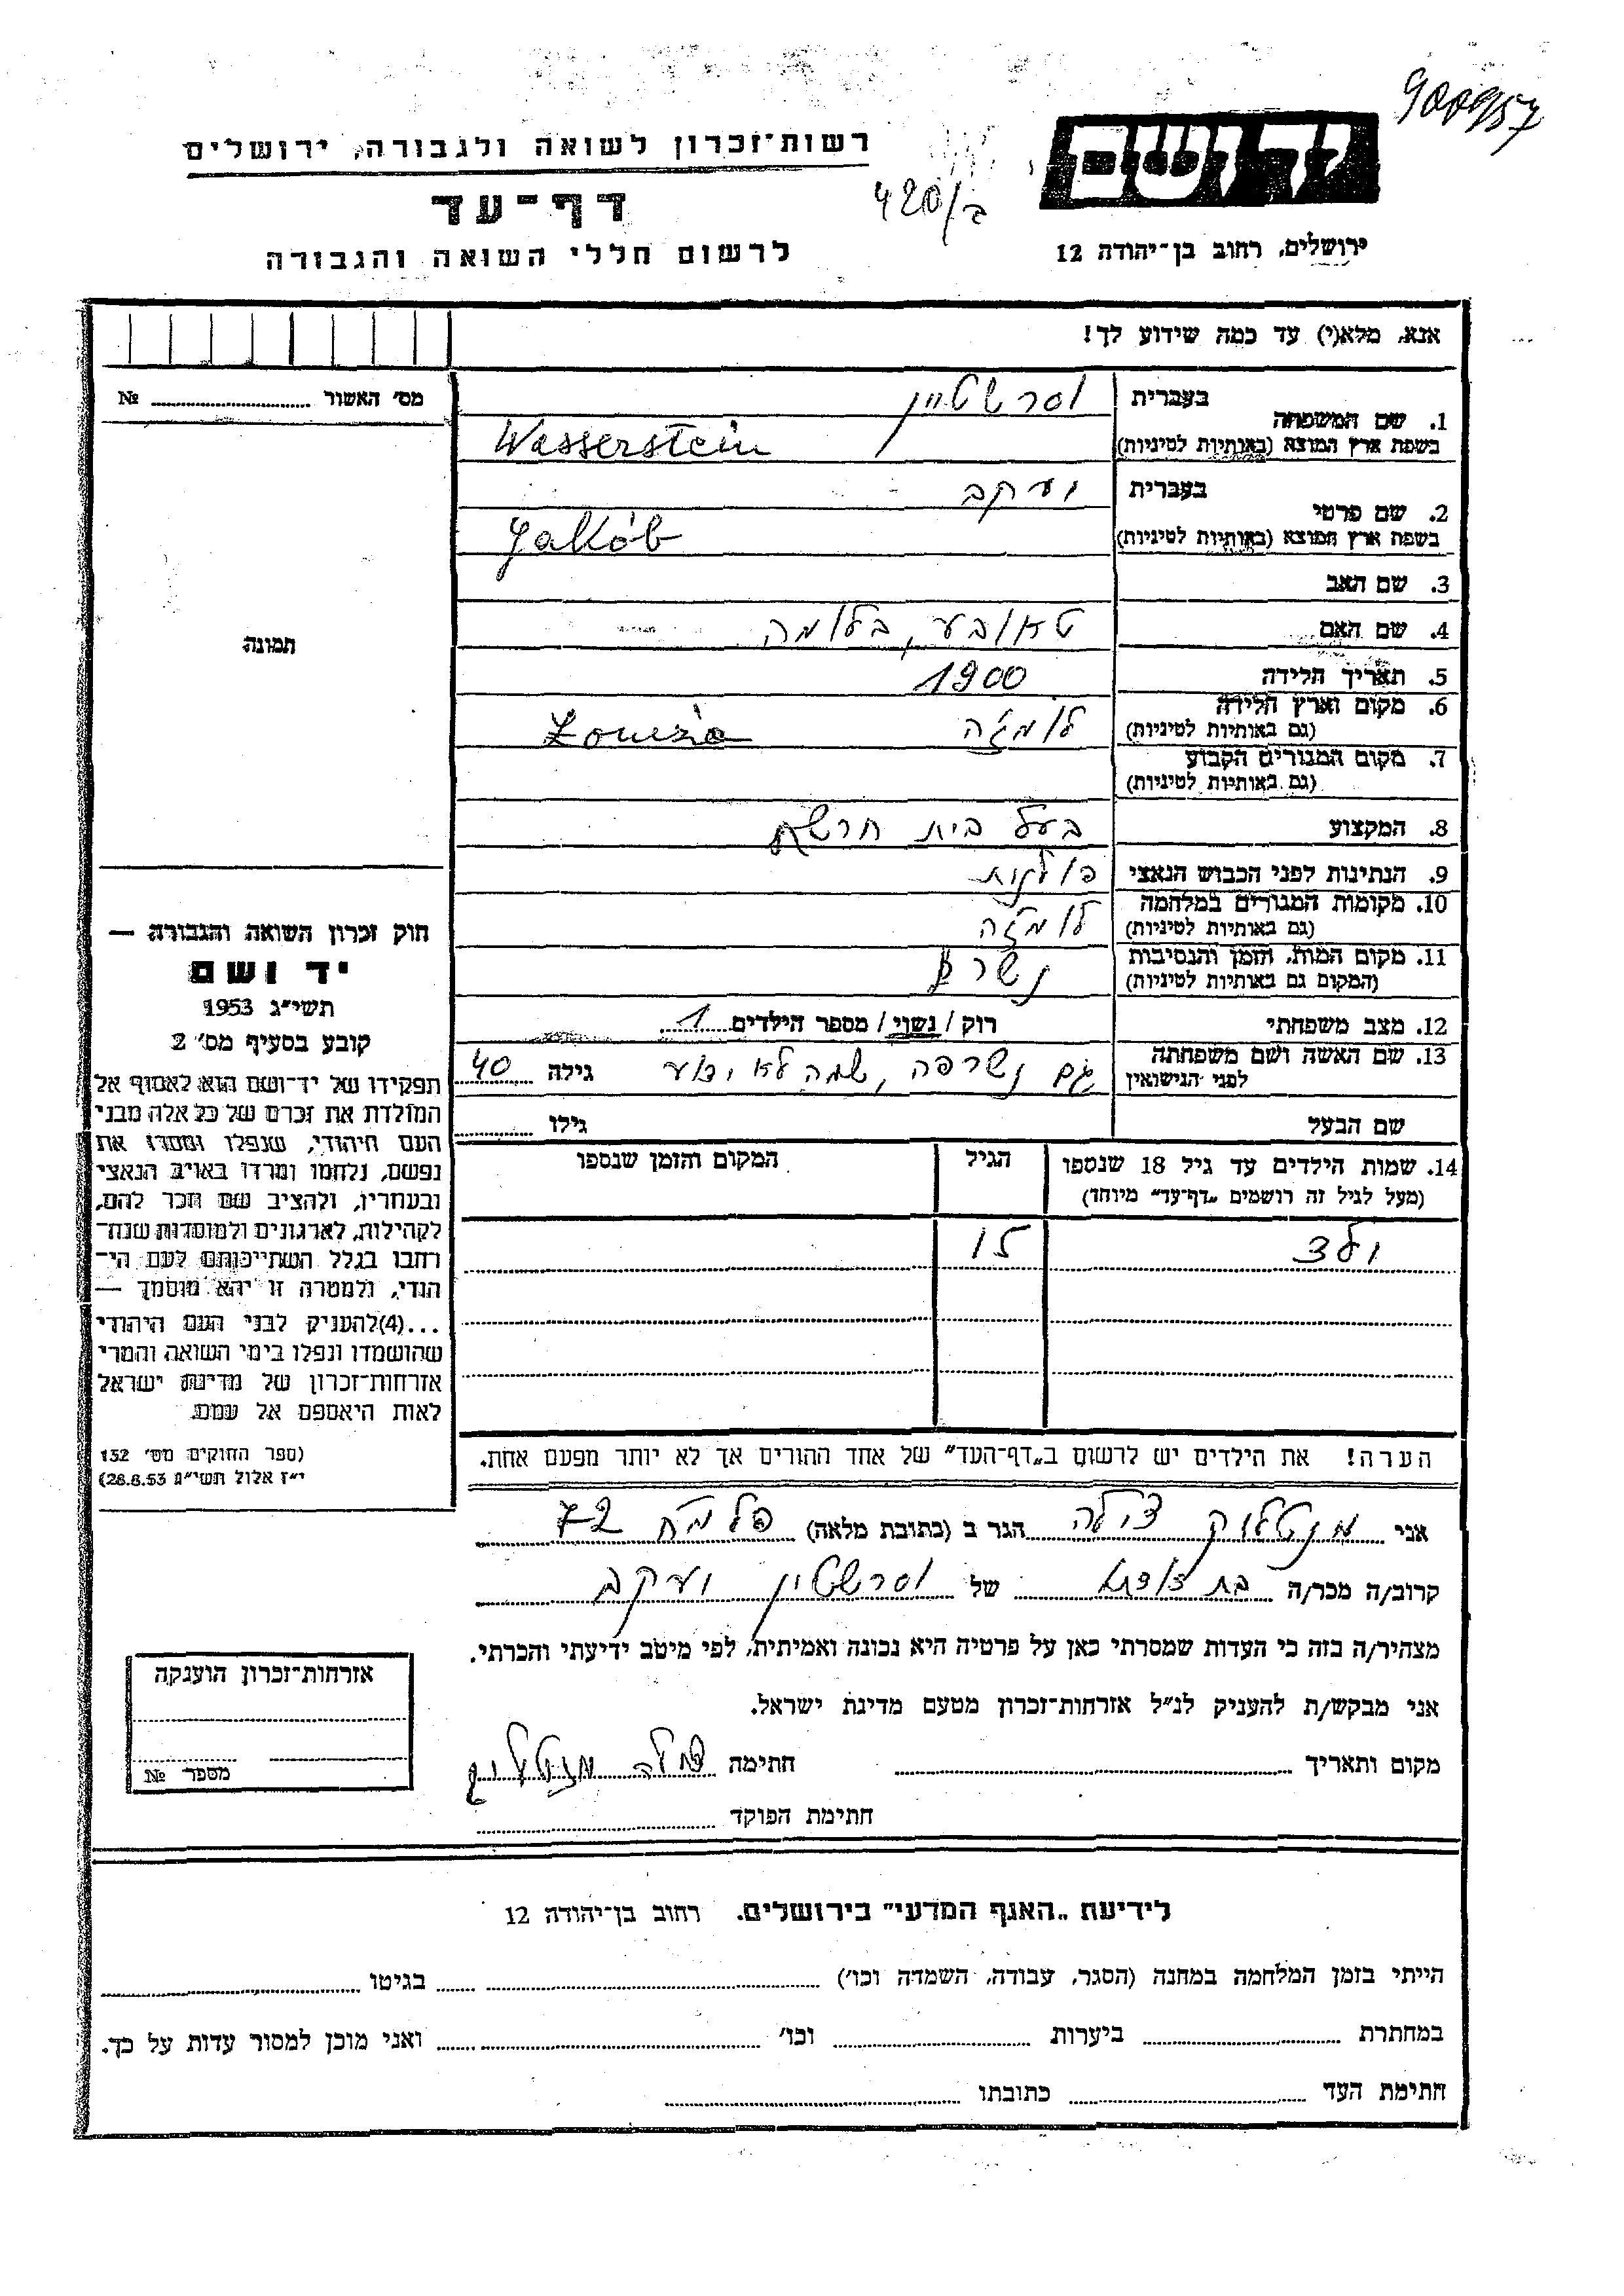 רשות־זכרון לשואה ולגבורה, ירושלים
דף־עד
לרשום חללי השואה והגבורה
420/ב
יד ושם
ירושלים, רחוב בן־יהודה 12
אנא, מלא(י) עד כמה שידוע לך!
מס׳ האשור № 
1. שם המשפחה
בעברית וסרשטיין
בשפת ארץ המוצא (באותיות לטיניות) Wasserstein
2. שם פרטי
בעברית יעקב
בשפת ארץ המוצא (באותיות לטיניות) Jakób
3. שם האב
4. שם האם טאובע, בלומה
5. תאריך הלידה 1900
6. מקום וארץ הלידה
(גם באותיות לטיניות) לומזה Łomża
7. מקום המגורים הקבוע
(גם באותיות לטיניות)
8. המקצוע בעל בית חרשת
9. הנתינות לפני הכבוש הנאצי פולנית
10. מקומות המגורים במלחמה
(גם באותיות לטיניות) לומזה
11. מקום המות, הזמן והנסיבות
(המקום גם באותיות לטיניות) נשרף
12. מצב משפחתי רוק / נשוי / מספר הילדים 1
13. שם האשה ושם משפחתה
לפני הנישואין גם נשרפה, שמה לא ידוע גילה 40
שם הבעל גילו
14. שמות הילדים עד גיל 18 שנספו הגיל המקום והזמן שנספו
(מעל לגיל זה רושמים „דף־עד" מיוחד)
ילד 15
הערה! את הילדים יש לרשום ב„דף־העד" של אחד ההורים אך לא יותר מפעם אחת.
תמונה
חוק זכרון השואה והגבורה —
יד ושם
תשי״ג 1953
קובע בסעיף מס׳ 2
תפקידו של יד־ושם הוא לאסוף אל
המולדת את זכרם של כל אלה מבני
העם היהודי, שנפלו ומסרו את
נפשם, נלחמו ומרדו באויב הנאצי
ובעוזריו, ולהציב שם וזכר להם,
לקהילות, לארגונים ולמוסדות שנח־
רבו בגלל השתייכותם לעם הי־
הודי, ולמטרה זו יהא מוסמך —
...(4)להעניק לבני העם היהודי
שהושמדו ונפלו בימי השואה והמרי
אזרחות־זכרון של מדינת ישראל
לאות היאספם אל עמם.
(ספר החוקים מס׳ 132
י״ז אלול תשי״ג 28.8.53)
אני מנטלוק צילה הגר ב (כתובת מלאה) פלמח 72
קרוב/ה מכר/ה בת דודתו של וסרשטיין יעקב
מצהיר/ה בזה כי העדות שמסרתי כאן על פרטיה היא נכונה ואמיתית, לפי מיטב ידיעתי והכרתי.
אני מבקש/ת להעניק לנ״ל אזרחות־זכרון מטעם מדינת ישראל.
מקום ותאריך חתימה
חתימת הפוקד
אזרחות־זכרון הוענקה
מספר №
לידיעת „האגף המדעי" בירושלים. רחוב בן־יהודה 12
הייתי בזמן המלחמה במחנה (הסגר, עבודה, השמדה וכו׳) בגיטו
במחתרת ביערות וכו׳ ואני מוכן למסור עדות על כך.
חתימת העד כתובתו